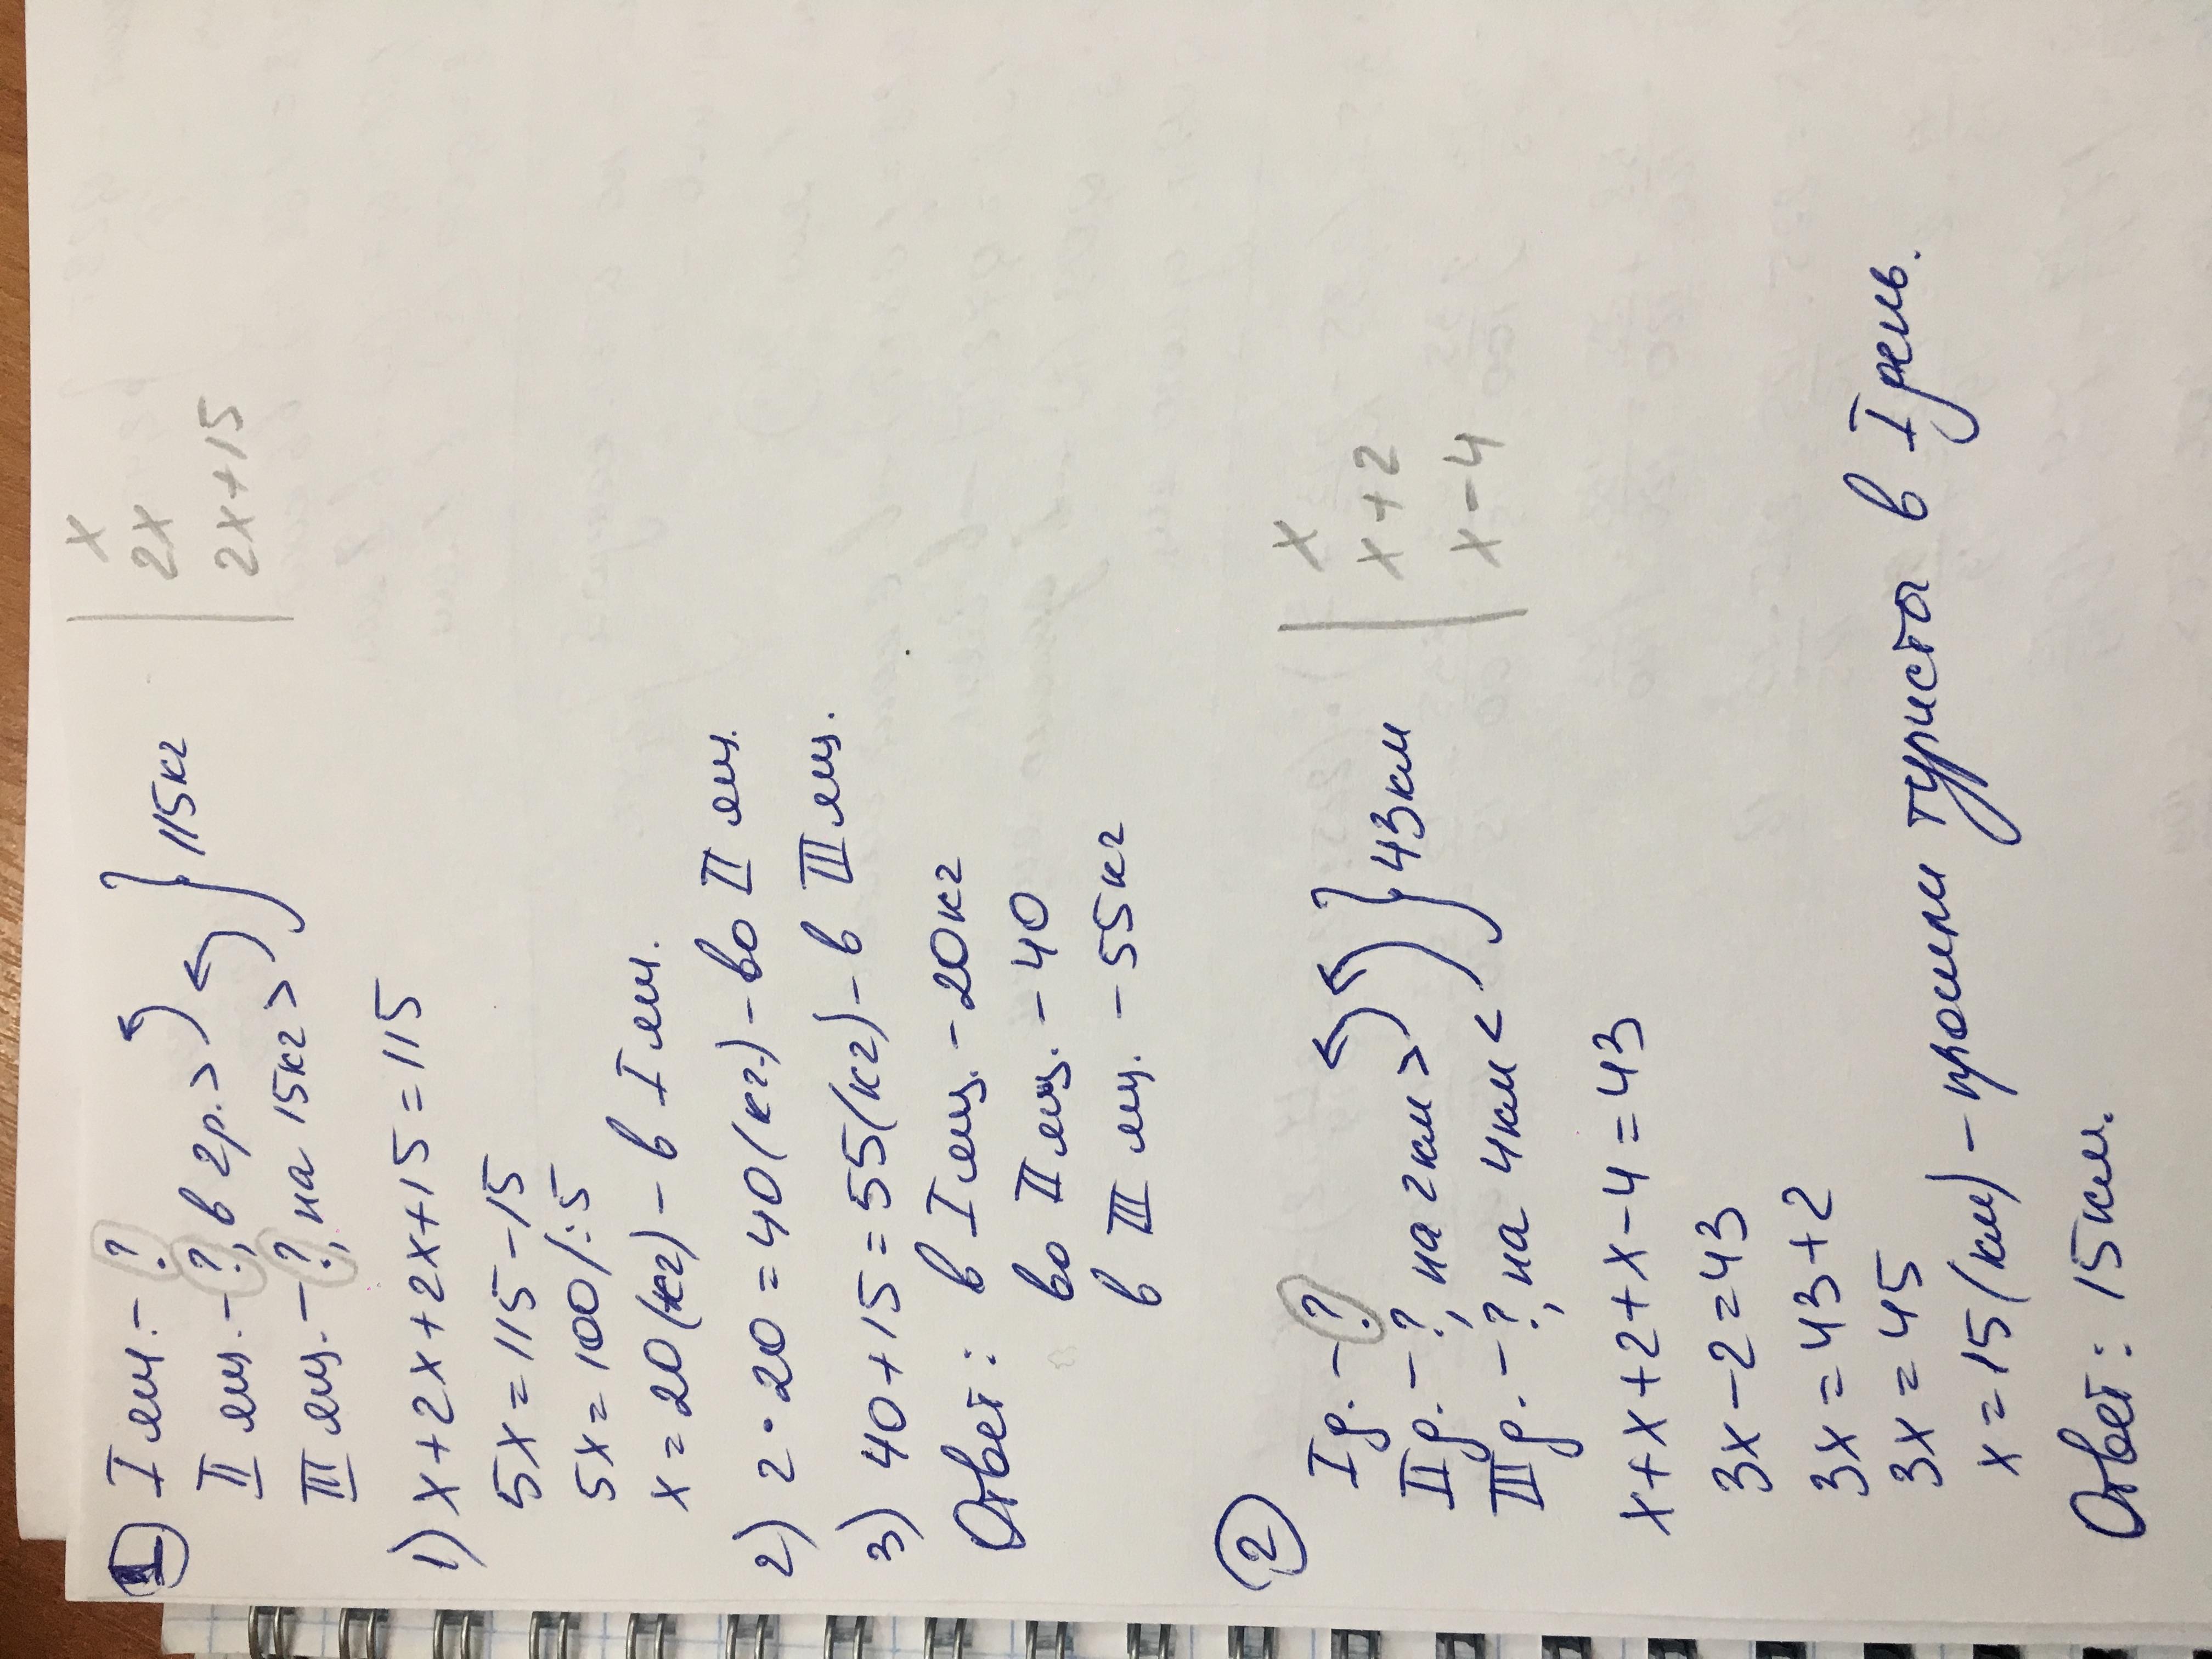 1 I ящ. - ? | x
II ящ. - ?, в 2р. > | 2x
III ящ. - ?, на 15кг > } 115кг | 2x+15
1) x+2x+2x+15=115
5x=115-15
5x=100/:5
x=20(кг) - в I ящ.
2) 2·20=40(кг.) - во II ящ.
3) 40+15=55(кг) - в III ящ.
Ответ: в I ящ. - 20кг
во II ящ. - 40
в III ящ. - 55кг
2 I д. - ? | x
II д. - ?, на 2км > | x+2
III д. - ?, на 4км < } 43км | x-4
x+x+2+x-4=43
3x-2=43
3x=43+2
3x=45
x=15(км) - прошли туристы в I день.
Ответ: 15км.